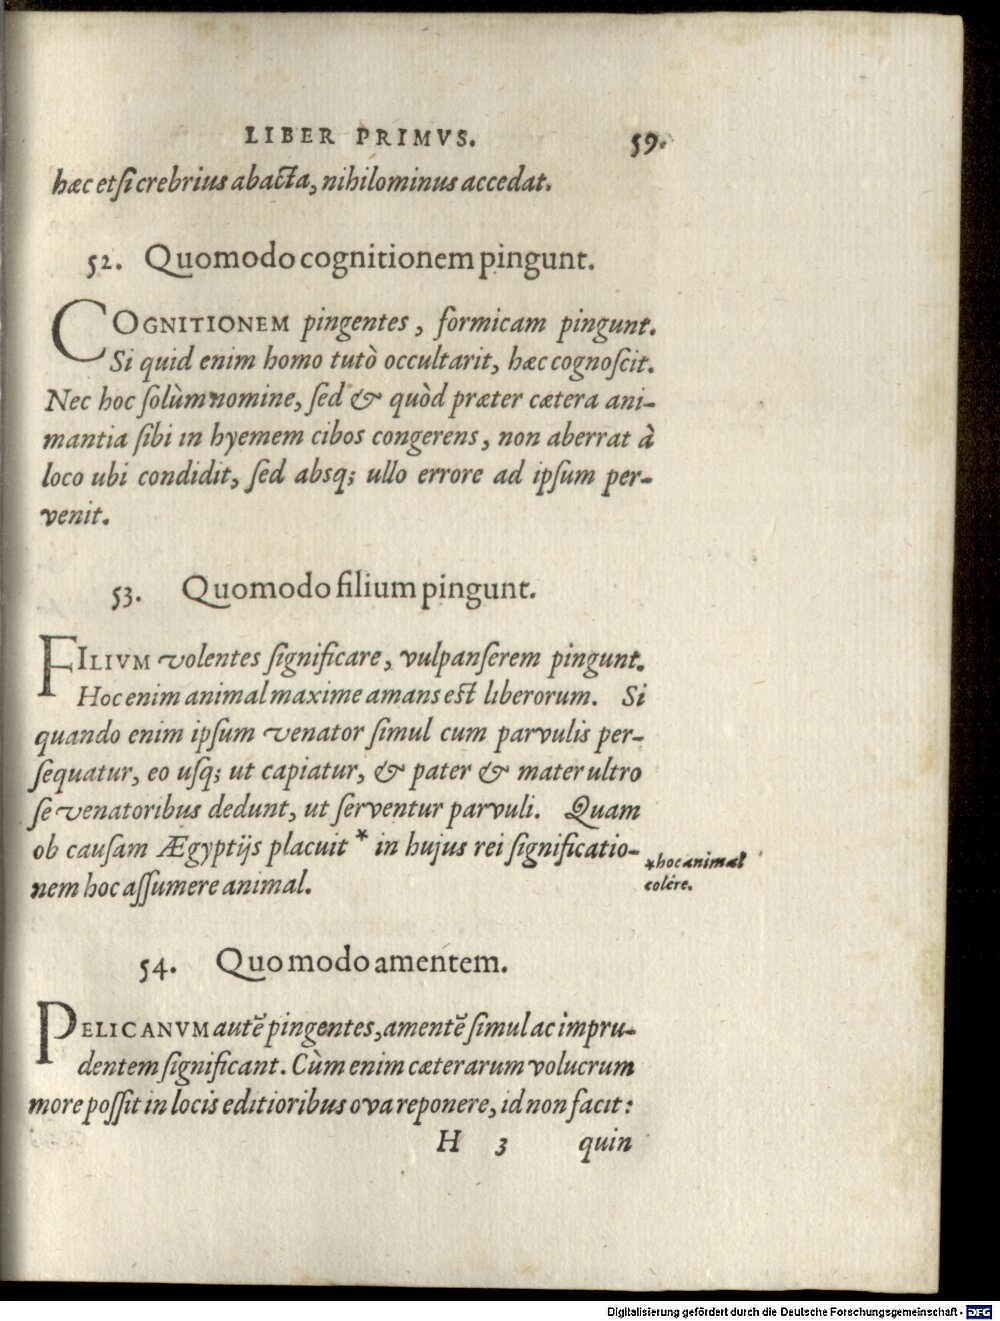 LIBER PRIMVS. 59.
hæc etsi crebrius abacta, nihilominus accedat.
52. Quomodo cognitionem pingunt.
COGNITIONEM pingentes, formicam pingunt.
Si quid enim homo tutò occultarit, hæc cognoscit.
Nec hoc solùm nomine, sed & quòd præter cætera ani-
mantia sibi in hyemem cibos congerens, non aberrat à
loco ubi condidit, sed absq; ullo errore ad ipsum per-
venit.
53. Quomodo filium pingunt.
FILIVM volentes significare, vulpanserem pingunt.
Hoc enim animal maxime amans est liberorum. Si
quando enim ipsum venator simul cum parvulis per-
sequatur, eo usq; ut capiatur, & pater & mater ultro
se venatoribus dedunt, ut serventur parvuli. Quam
ob causam Ægyptijs placuit * in hujus rei significatio-
nem hoc assumere animal.
*hoc animal
colére.
54. Quomodo amentem.
PELICANVM autē pingentes, amentē simul ac impru-
dentem significant. Cùm enim cæterarum volucrum
more possit in locis editioribus ova reponere, id non facit:
H 3 quin
Digitalisierung gefördert durch die Deutsche Forschungsgemeinschaft - DFG